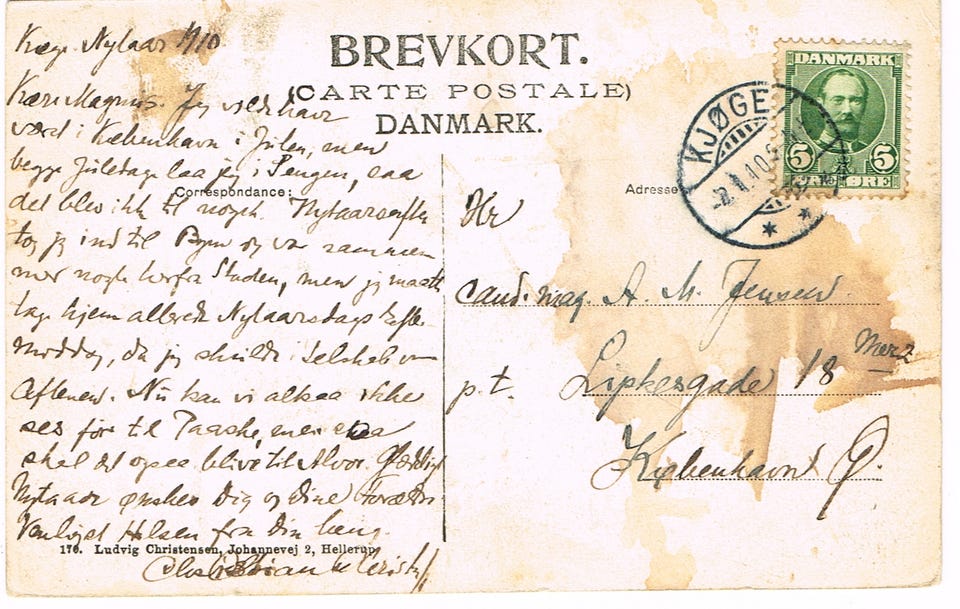 BREVKORT.
(CARTE POSTALE)
DANMARK.
Nytaar 1910
Kære Magnus. Jeg vilde have
været i København i Julen, men
begge Juledage laa jeg i Sengen, saa
det blev ikke til noget. Nytaarsaften
tog jeg ind til Byen og var sammen
med nogle herfra Staden, men jeg maatte
tage hjem allerede Nytaarsdags Efter-
middag, da jeg skulde i Selskab om
Aftenen. Nu kan vi altsaa ikke
ses før til Paaske, men saa
skal det ogsaa blive til Alvor. Glædeligt
Nytaar ønskes Dig og dine Forældre
Venligst Hilsen fra Din heng.
Correspondance:
176. Ludvig Christensen, Johannevej 2, Hellerup.
DANMARK
5 5
ØRE ØRE
KJØGE
Adresse
Hr
cand. mag. A. M. Jensen
p.t. 18
København Ø.